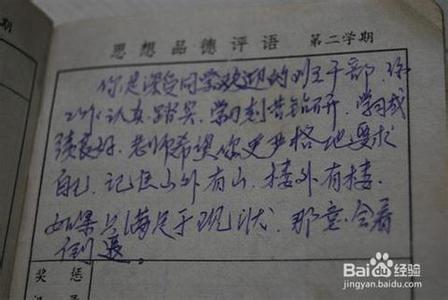 思想品德评语 第二学期
你是深受同学欢迎的班干部,你
工作认真踏实,学习刻苦钻研,学习成
绩良好.老师希望你更严格地要求
自己,记住山外有山,楼外有楼.
如果只满足于现状,那意会着
倒退。
奖惩
Baidu经验
jingyan.baidu.com